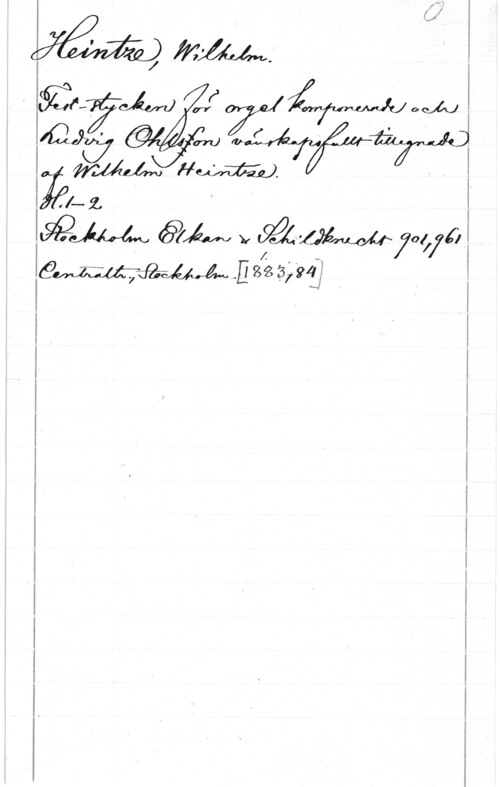 O
Heintze, Wilhelm.
Fest-stycken för orgel komponerade och
Ludvig Ohlsson vänskapsfullt tillegnade
af Wilhelm Heintze.
H. 1-2
Stockholm Elkan & Schildknecht 901,961
Centraltr., Stockholm. [1883,84]